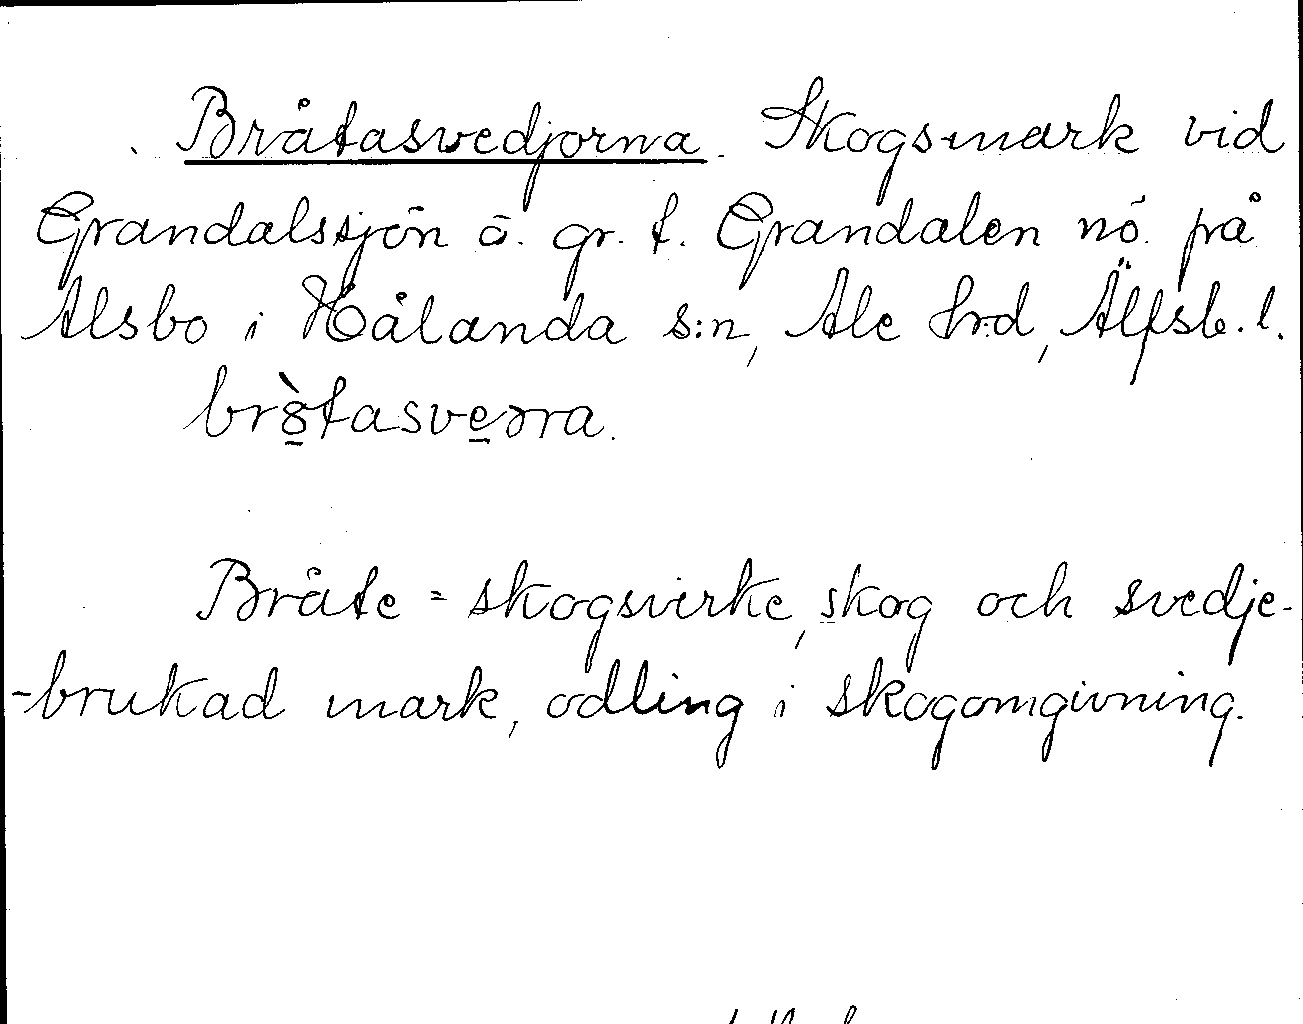 Bråtasvedjorna. Skogsmark vid
Grandalssjön ö. gr. t. Grandalen nö. frå
Alsbo i Hålanda s:n, Ale hrd, Älfsb. l.
brȍ̲tasve̲rra.
Bråte = skogsvirke, skog och svedje-
-brukad mark, odling i skogomgivning.